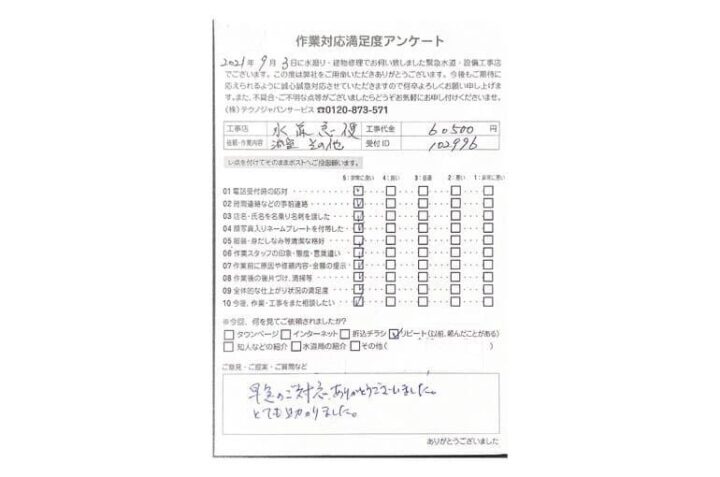 作業対応満足度アンケート
2021年9月3日に水廻り・建物修理でお伺い致しました緊急水道・設備工事店
でございます。この度は弊社をご用命いただきありがとうございます。今後もご期待に
応えられるように誠心誠意対応させていただきますので何卒よろしくお願い申し上げま
す。また、不具合・ご不明な点等がございましたらどうぞお気軽にお申し付けくださいませ。
(株)テクノジャパンサービス ☎0120-873-571
工事店 水 急 工事代金 60500 円
依頼・作業内容 その他 受付ID 102996
レ点を付けてそのままポストへご投函願います。
5:非常に良い 4:良い 3:普通 2:悪い 1:非常に悪い
01 電話受付時の応対
02 時間連絡などの事前連絡
03 店名・氏名を名乗り名刺を渡した
04 顔写真入りネームプレートを付帯した
05 服装・身だしなみ等清潔な格好
06 作業スタッフの印象・態度・言葉遣い
07 作業前に原因や修理内容・金額の提示
08 作業後の後片づけ、清掃等
09 全体的な仕上がり状況の満足度
10 今後、作業・工事をまた相談したい
※今回、何を見てご依頼されましたか?
□タウンページ □インターネット □折込チラシ ☑リピート(以前、頼んだことがある)
□知人などの紹介 □水道局の紹介 □その他( )
ご意見・ご提案・ご質問など
早急のご対応、ありがとうございました。
とても助かりました。
ありがとうございました